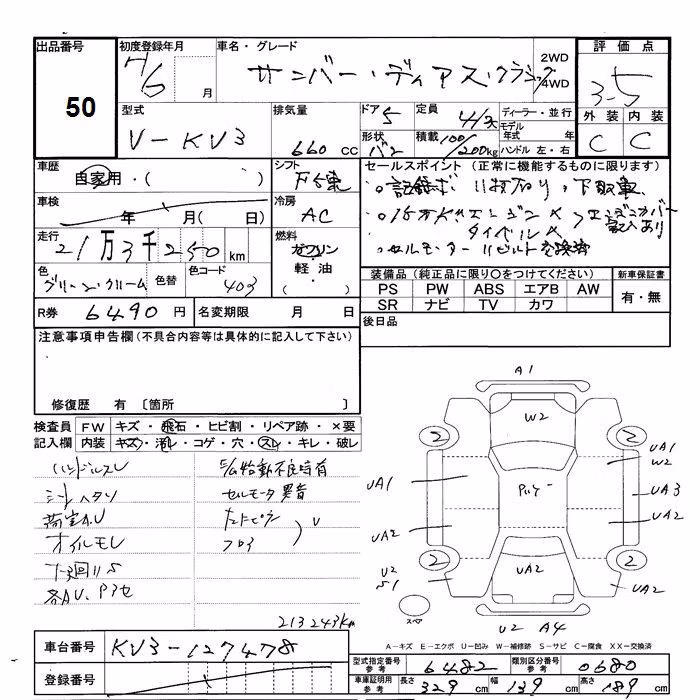 出品番号 初度登録年月 車名・グレード 2WD 評価点
50 7/6 月 サンバー・ディアス・クラシック 4WD 3.5
型式 排気量 ドア 5 定員 ディーラー・並行 外装 内装
V-KV3 660 cc 形状 バン 積載 100/200kg モデル年式 年 ハンドル 左・右 C C
車歴 自家用・( ) シフト セールスポイント (正常に機能するものに限ります)
車検 年 月( 日) 冷房 AC
タイベル
セルモーター リビルト 交換済
走行 21万3千250km 燃料 ガソリン 軽油・( )
色 グリーン・クリーム 色替 色コード 403
装備品 (純正品に限り○をつけてください) 新車保証書
PS PW ABS エアB AW 有・無
SR ナビ TV カワ
R券 6490 円 名変期限 月 日 後日品
注意事項申告欄(不具合内容等は具体的に記入して下さい)
修復歴 有 〔箇所 〕
検査員 FW キズ・飛石・ヒビ割・リペア跡・×要
記入欄 内装 キズ・汚レ・コゲ・穴・スレ・キレ・破レ
ハンドルスレ 始動不良時有
シートヘタリ セルモータ異音
荷室A.U
オイルモレ フロア
下廻りS
各AU、P
213243km
A1
W2
2 2
UA1 UA1 W2
UA3
UA2 UA2
2 2
U2 S1 UA2 UA2
スペア
U2 A4
A-キズ E-エクボ U-凹み W-補修跡 S-サビ C-腐食 XX-交換済
車台番号 KV3-127478
登録番号
型式指定番号 参考 6482 類別区分番号 参考 0680
車庫証明用 参考 長さ 329 cm 幅 139 cm 高さ 189 cm